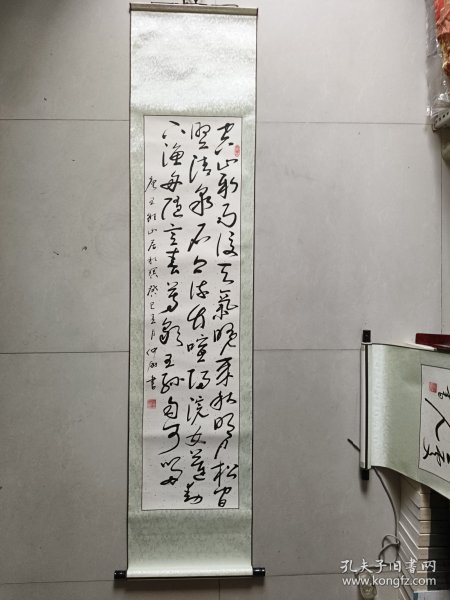 空山新雨後天氣晚來秋明月松間
照清泉石上流竹喧歸浣女蓮動
下漁舟隨意春芳歇王孫自可留
唐王維山居秋暝 癸巳夏月仲書
人
孔夫子旧书网
www.kongfz.com